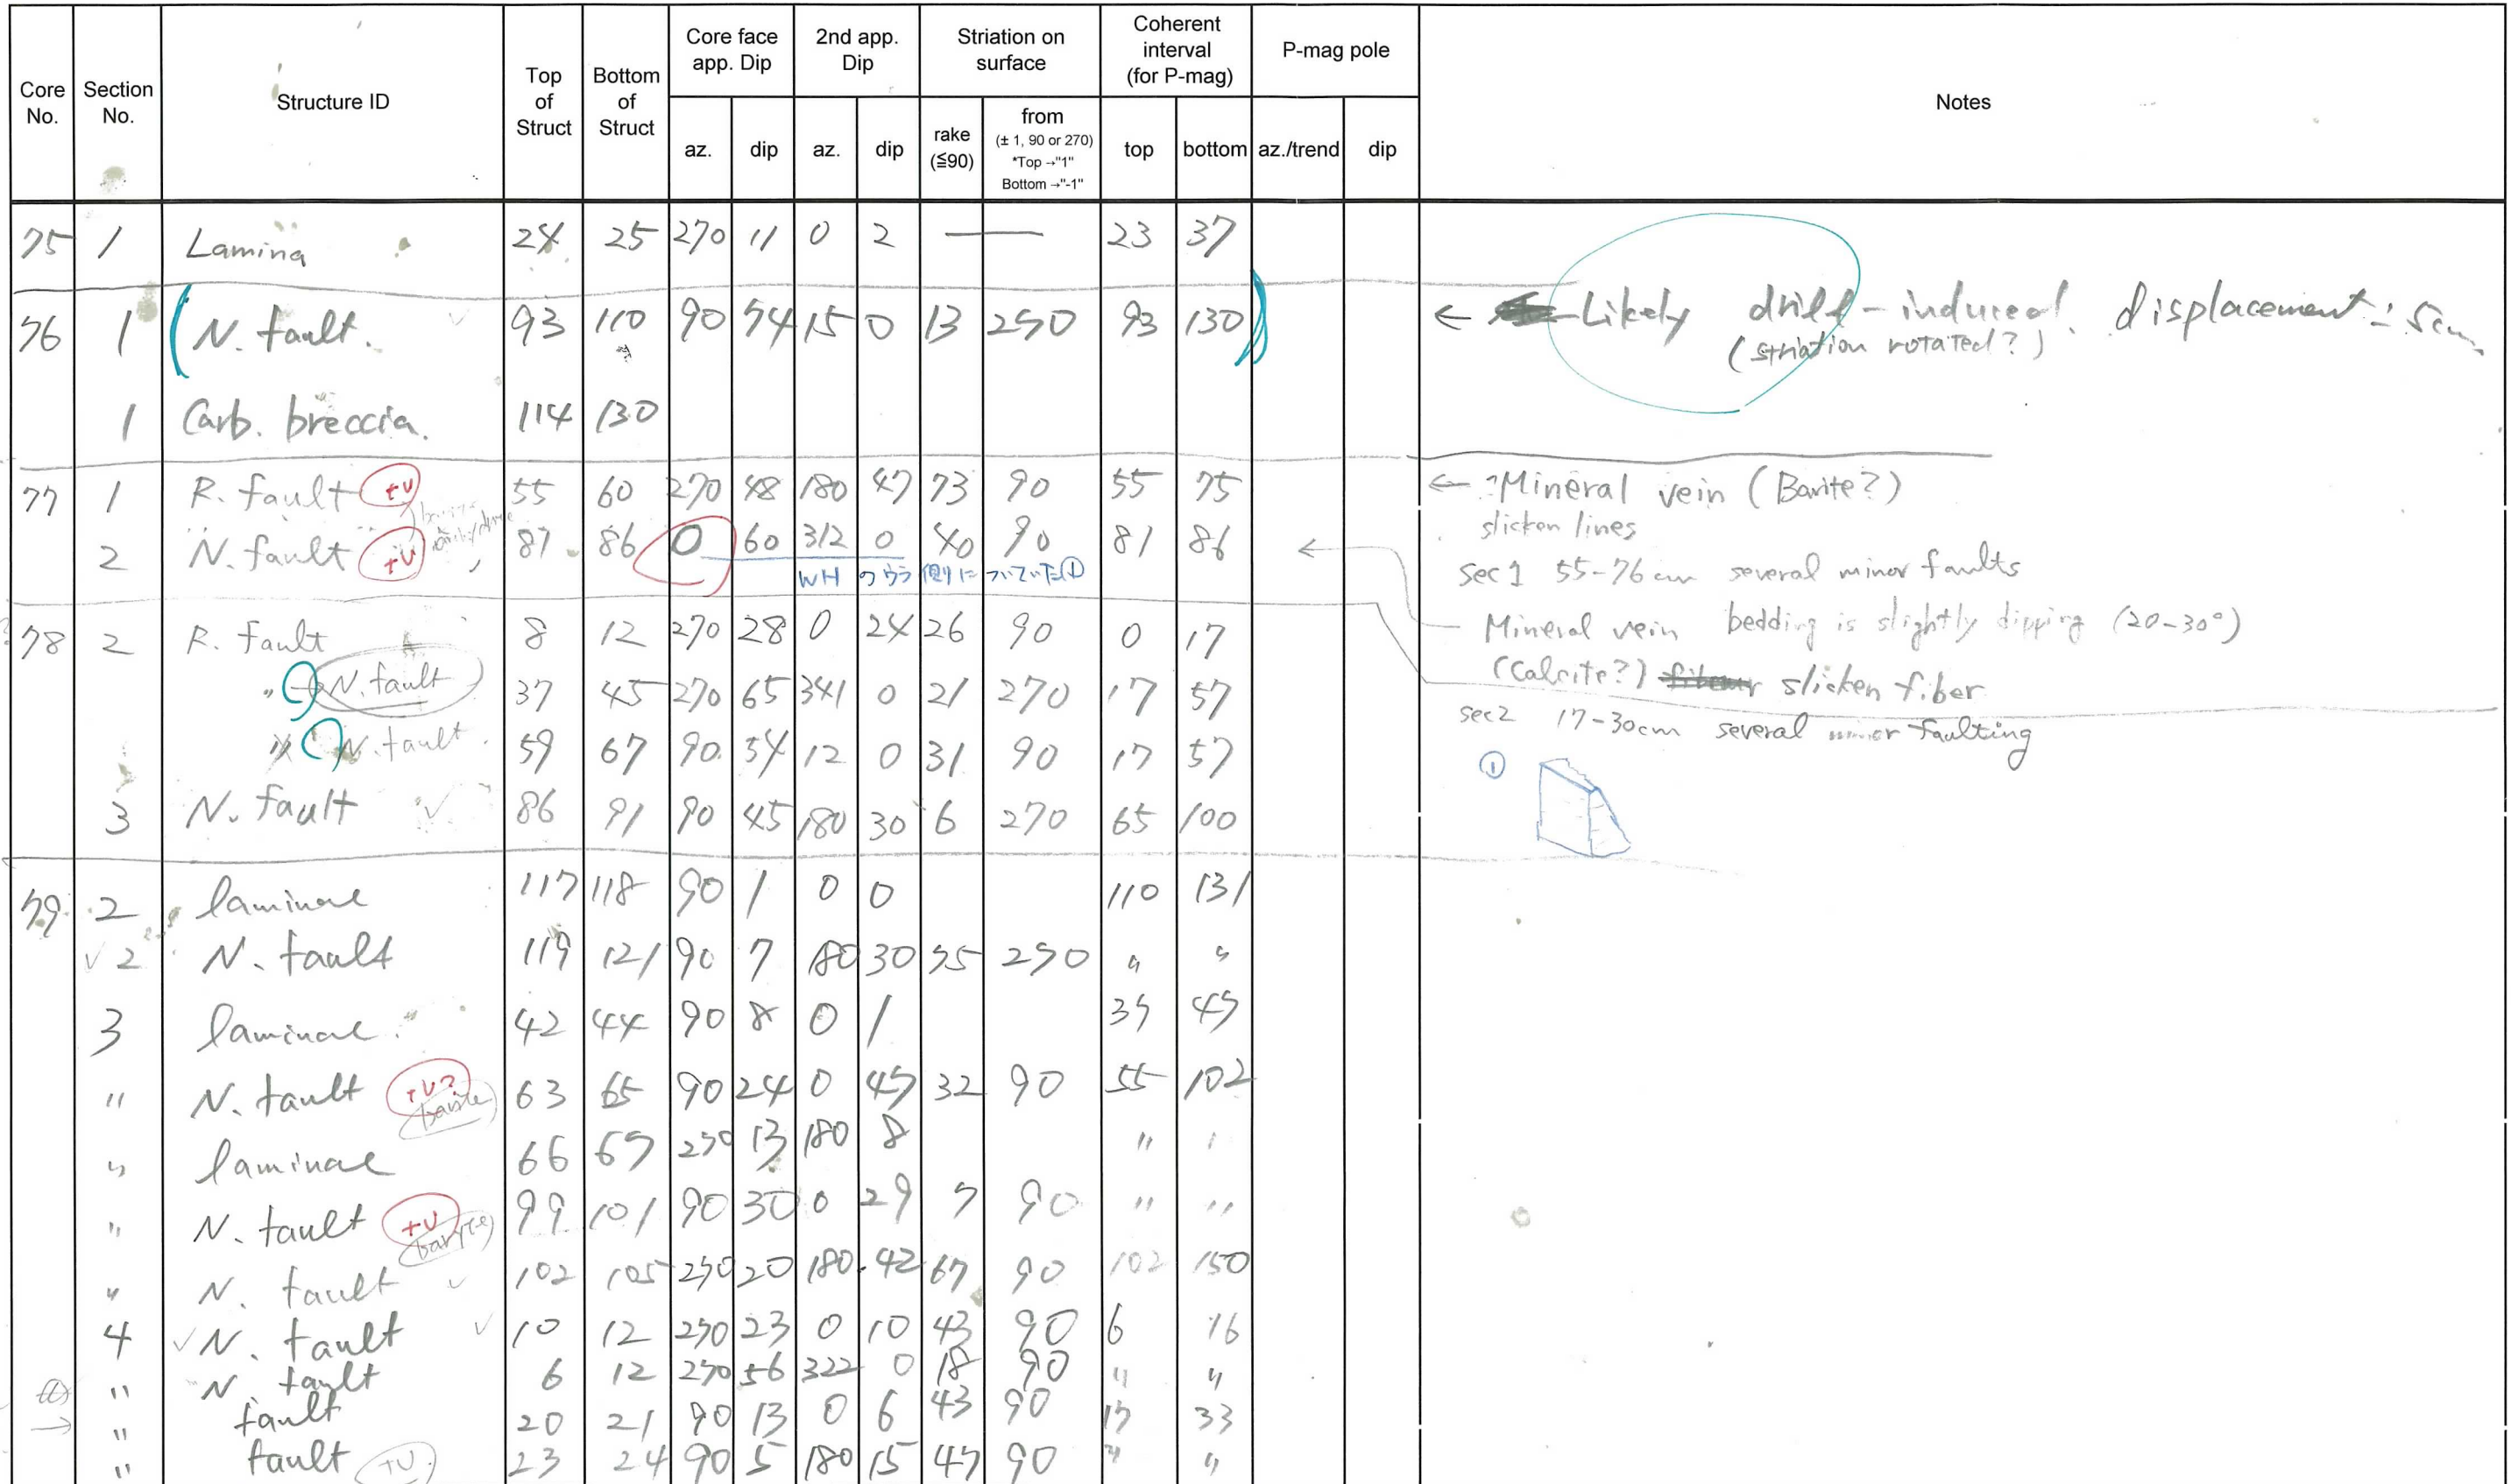 Core No. Section No. Structure ID Top of Struct Bottom of Struct Core face app. Dip 2nd app. Dip Striation on surface Coherent interval (for P-mag) P-mag pole Notes
az. dip az. dip rake (≦90) from (± 1, 90 or 270) *Top →"1" Bottom →"-1" top bottom az./trend dip
75 1 Lamina 24 25 270 11 0 2 — 23 37
76 1 N. fault. 93 110 90 54 15 0 13 270 93 130 ← Likely drill-induced. displacement = 5cm
(striation rotated?)
1 Carb. breccia. 114 130
77 1 R. fault +v 55 60 270 48 180 47 73 90 55 75 ← Mineral vein (Barite?)
slicken lines
2 N. fault +v 87 86 0 60 312 0 40 90 81 86 ←
WH のウラ側についていた①
sec 1 55-76cm several minor faults
78 2 R. fault 8 12 270 28 0 24 26 90 0 17
Mineral vein bedding is slightly dipping (20-30°)
(Calcite?) slicken fiber
" N. fault 37 45 270 65 341 0 21 270 17 57
sec2 17-30cm several minor faulting
N. fault. 59 67 90 54 12 0 31 90 17 57
①
3 N. fault 86 91 90 45 180 30 6 270 65 100
79 2 laminae 117 118 90 1 0 0 110 131
✓ 2 N. fault 119 121 90 7 180 30 55 270 " "
3 laminae. 42 44 90 8 0 1 35 45
" N. fault +v? barite 63 65 90 24 0 45 32 90 55 102
" laminae 66 67 270 13 180 8 " "
" N. fault +v barite 99 101 90 30 0 29 7 90 " "
" N. fault ✓ 102 105 270 20 180 42 67 90 102 150
4 ✓ N. fault ✓ 10 12 270 23 0 10 43 90 6 16
" N. fault 6 12 270 56 322 0 18 90 " "
→ " fault 20 21 90 13 0 6 43 90 17 33
" fault +v 23 24 90 5 180 15 47 90 " "